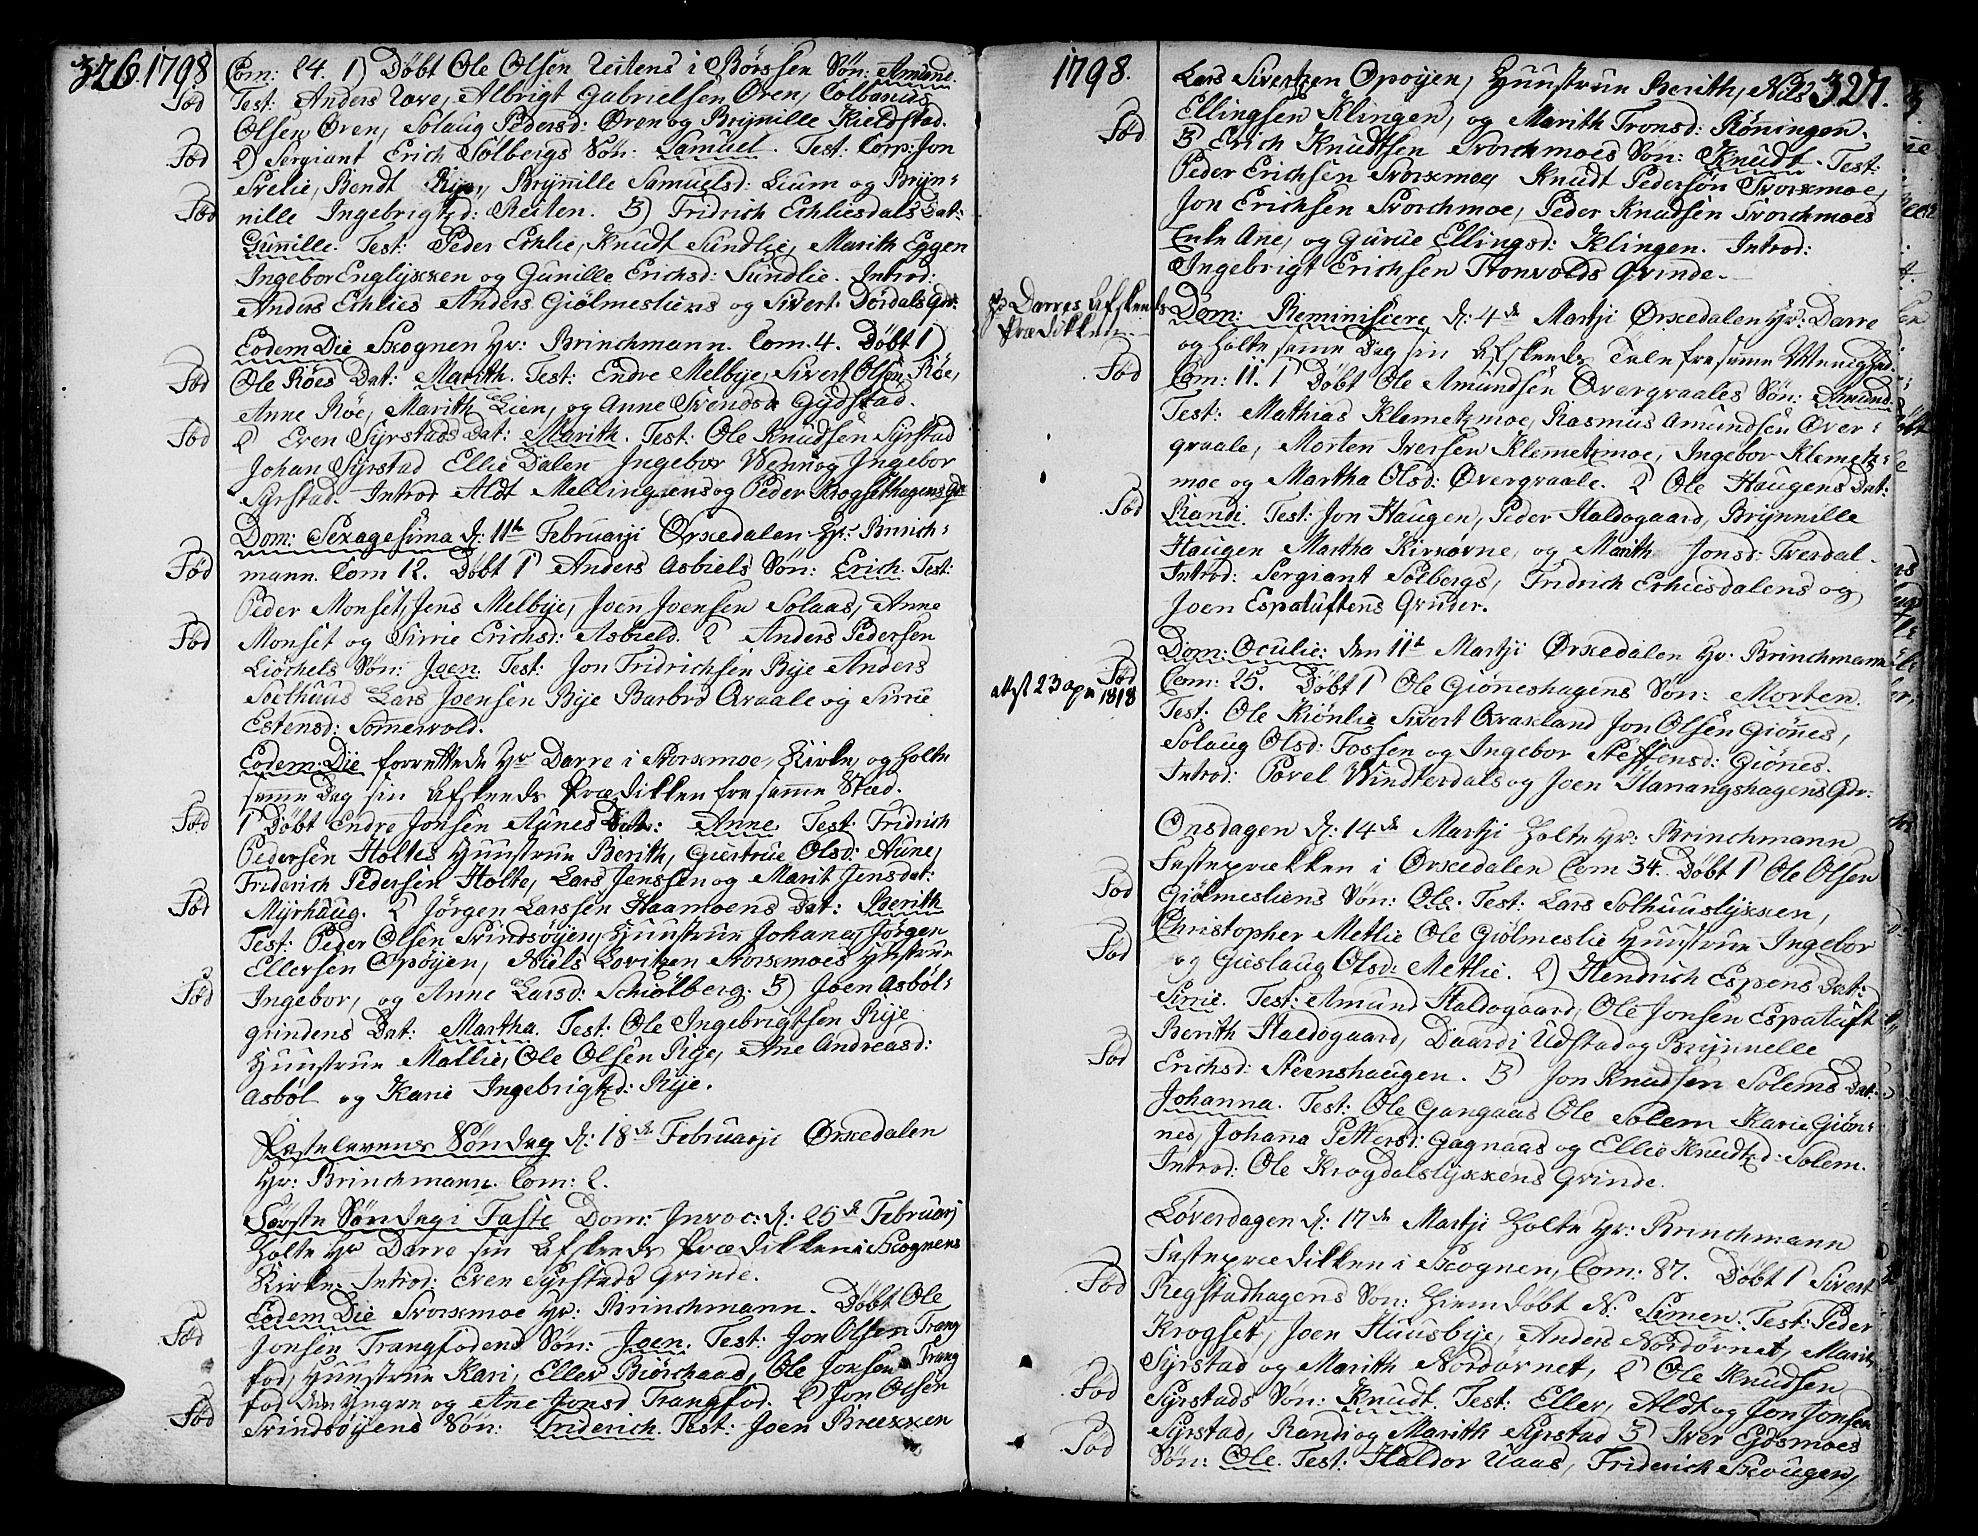 326. 1798
Com: 24. 1) Døbt Ole Olsen Reitens i Børssen Søn: Amund.
Fød
Test: Anders Uve, Albrigt Gabrielsen Øren, Colbanus
Olsen Øren, Solaug Pedersd: Øren og Brynille Kieldstad.
Fød
2) Sergiant Erich Solbergs Søn: Samuel. Test: Corp: Jon
Srelie, Bendt Rye, Brynille Samuelsd: Lium og Bryn-
Fød
nille Ingebrigtzd: Reiten. 3) Fridrich Echliesdals Dat:
Gunille. Test: Peder Echlie, Knudt Sundlie, Marith Eggen
Ingebor Englyxxen og Gunille Erichsd: Sundlie. Introd:
Anders Echlies Anders Giølmesliens og Sivert Dørdals Gr:
Eodem Die Skognen Hr: Brinchmann. Com. 4. Døbt 1)
Fød
Ole Røes Dat: Marith. Test: Endre Melbye, Sivert Olsen Røe,
Anne Røe, Marith Lien, og Anne Svendsd: Gydstad.
Fød
2 Even Syrstads Dat: Marith. Test: Ole Knudsen Syrstad
Johan Syrstad Ellie Dalen Ingebor Wenn og Ingebor
Syrstad. Introd Aldt Mellingxens og Peder Krogsethagens Gr:
Dom: Sexagesima d: 11te Februarji Ørkedalen Hr: Brinch-
Fød
mann. Com 12. Døbt 1 Anders Asbiels Søn: Erich. Test:
Peder Monset, Jens Melbye, Joen Joensen Solaas, Anne
Fød
Monset og Sirrie Erichsd: Asbield. 2 Anders Pedersen
Liøchels Søn: Joen. Test: Jon Fridrichsen Bye Anders
Soelhuus Lars Joensen Bye Barbro Qvaale og Sirrie
Estensd: Somervold.
Eodem Die forrettede Hr Darre i Storxmoe Kirke, og holte
samme Dag sin Afskeeds Prædikken fre samme Stæd.
Fød
1 Døbt Endre Jonsen Aunes Dat: Anne. Test. Fridrich
Pedersen Holtes Huustrue Berith, Giertrue Olsd: Aune,
Friderich Pedersen Holte, Lars Jenssen og Marit Jensdat:
Fød
Myrhaug. 2 Jørgen Larssen Haamoens Dat: Berith
Test: Peder Olsen Svindsøyen, Huustrue Johanes Jørgen
Ellersen Opøyen, Niels Lovitzen Storxmoes Hustrue
Fød
Ingebor, og Anne Larsd: Schiølberg. 3) Joen Asbøl-
grindens Dat: Martha. Test: Ole Ingebrigtsen Rije
Huustrue Mallie, Ole Olsen Rije, Ane Andreasd:
Asbøl og Kari Ingebrigtzd: Rije.
Fastelavens Søndag d: 18de Februarji Ørkedalen
Hr: Brinchmann. Com: 2.
Første Søndag i Faste Dom: Invoc: d: 25de Februarj
holte Hr Darre sin Afskeeds Prædikken i Skognens
Kirke. Introd: Even Syrstads Grinde.
Eodem Die Svorxmoe Hr: Brinchmann. Døbt Ole
Fød
Jonsen Trangfodens Søn: Joen. Test: Jon Olsen Trang
fod, Huustrue Kari, Eller Biørchaas, Ole Jonsen Trang
fod den Yngre og Ane Jonsd Trangfod. 2 Jon Olsen
Fød
Svindsøyens Søn: Friderich. Test: Joen Breexxen
1798. 327.
Lars Sivertzen Opøyen, Huustrue Berith, Nils
Ellingsen Klingen, og Marith Tronsd: Rønningen.
Fød
3 Erich Knudtsen Svorchmoes Søn: Knudt. Test:
Peder Erichsen Svorxmoe, Knudt Pedersøn Svorxmoe,
Jon Erichsen Svorchmoe, Peder Knudsen Svorchmoes
Enke Ane, og Gurue Ellingsd: Klingen. Introd:
Ingebrigt Erichsen Stonvolds Grinde.
Hr Darres Afskeeds
Prædikken
Dom: Reminiscere d: 4de Martji Ørkedalen Hr: Darre
og holte samme Dag sin Afskeeds Tale fre samme Menighed.
Fød
Com: 11. 1 Døbt Ole Amundsen Overgraales Søn: Amund.
Test: Mathias Klemetzmoe, Rasmus Amundsen Over-
graale, Morten Iversen Klemetzmoe, Ingebor Klemetz-
moe og Martha Olsd: Øvergraale. 2 Ole Haugens Dat:
Fød
Randi. Test: Jon Haugen, Peder Haldogaard, Brynnille
Haugen Martha Kirkørne, og Marith Jonsd: Tverdal.
Introd: Sergiant Solbergs, Fridrich Echliesdalens og
Joen Espaluftens Grinder.
Dom: Oculie: den 11te Martji Ørkedalen Hr: Brinchmann
Fød
attest 23 apr 1818
Com: 25. Døbt 1 Ole Giøneshagens Søn: Morten.
Test: Ole Kiønlie Sivert Qvaxland Jon Olsen Giønes,
Solaug Olsd: Fossen og Ingebor Steffensd: Giønes.
Introd: Povel Windterdals og Joen Hanangshagens Gr:
Onsdagen d: 14de Martji holte Hr: Brinchmann
Fasteprækken i Ørkedalen Com 34. Døbt 1 Ole Olsen
Fød
Giølmesliens Søn: Ole. Test: Lars Solhuuslyxxen,
Christopher Metlie Ole Giølmeslie Huustrue Ingebor
Fød
og Gieslaug Olsd: Metlie. 2) Hendrich Espens Dat:
Sirrie. Test: Amund Haldogaard, Ole Jonsen Espaluft
Berith Haldogaard, Daardi Udstad og Brynnelle
Fød
Erichsd: Steenshaugen. 3 Jon Knudsen Solems Dat:
Johanna. Test: Ole Gangaas Ole Solem Karie Giøn-
nes, Johanna Pettersd: Gagnaas og Ellie Knudtzd: Solem.
Introd: Ole Krogdalslyxxens Grinde.
Løverdagen d: 17de Martji holte Hr: Brinchmann
Fasteprædikken i Skognen, Com: 87. Døbt 1 Sivert
Fød
Regstadhagens Søn: Hiemdøbt N: Simen. Test: Peder
Krogset, Joen Huusbye, Anders Nordørnet, Marit
Syrstad og Marith Nordørnet, 2 Ole Knudsen
Fød
Syrstads Søn: Knudt. Test: Eller, Aldt og Jon Jonsen
Fød
Syrstad, Randi og Marith Syrstad 3) Iver Eidsmoes
Søn: Ole. Test: Haldor Uaas, Friderich Skougen,